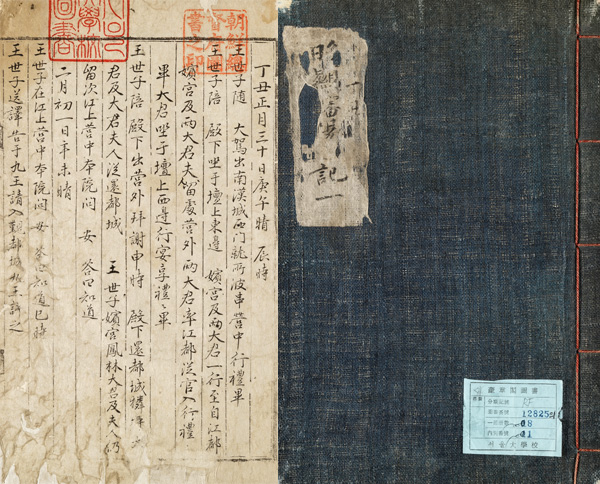 丁丑正月三十日庚午晴 辰時
王世子隨 大駕出南漢城西門就所波串營中行禮畢
王世子陪 殿下坐于壇上東邊 嬪宮及兩大君一行至自江都
嬪宮及兩大君夫人留處營外 兩大君率江都從官入行禮
畢大君坐于壇上西邊行宴享禮〻畢
王世子陪 殿下出營外拜謝申時 殿下還都城麟坪大
君及大君夫人從還都城 王世子嬪宮鳳林大君及夫人仍
留次江上營中本院問 安 答曰知道
二月初一日辛未晴
王世子在江上營中本院問 安 答曰知道巳時
王世子送譯官于九王請入覲都城九王許之
朝鮮總
督府圖
書之印
昭顯 記一
奎章閣圖書
分類記號
圖書番號 12825
一部冊數 8
1
서울大學校